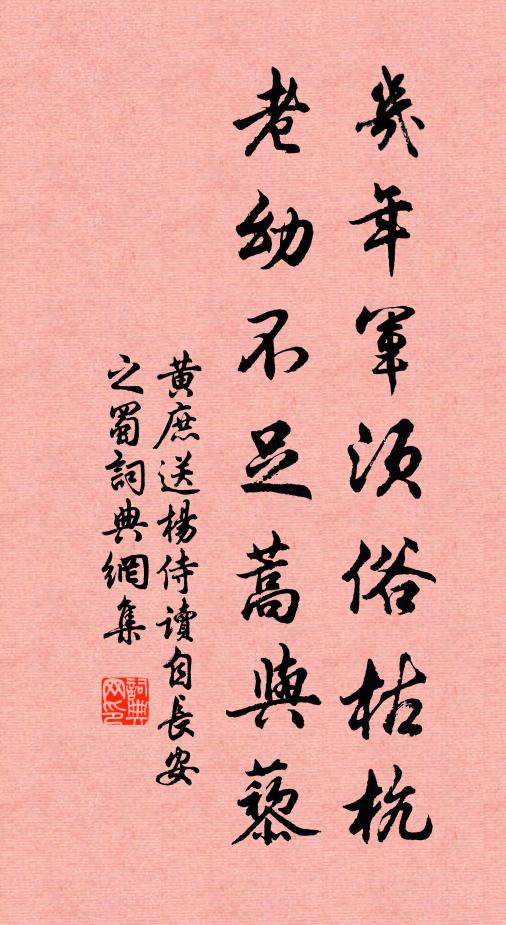 幾年軍須俗枯杭
老幼不足蒿與藜
黃庶送楊侍讀自長安
之蜀詞典網集
詞典網印